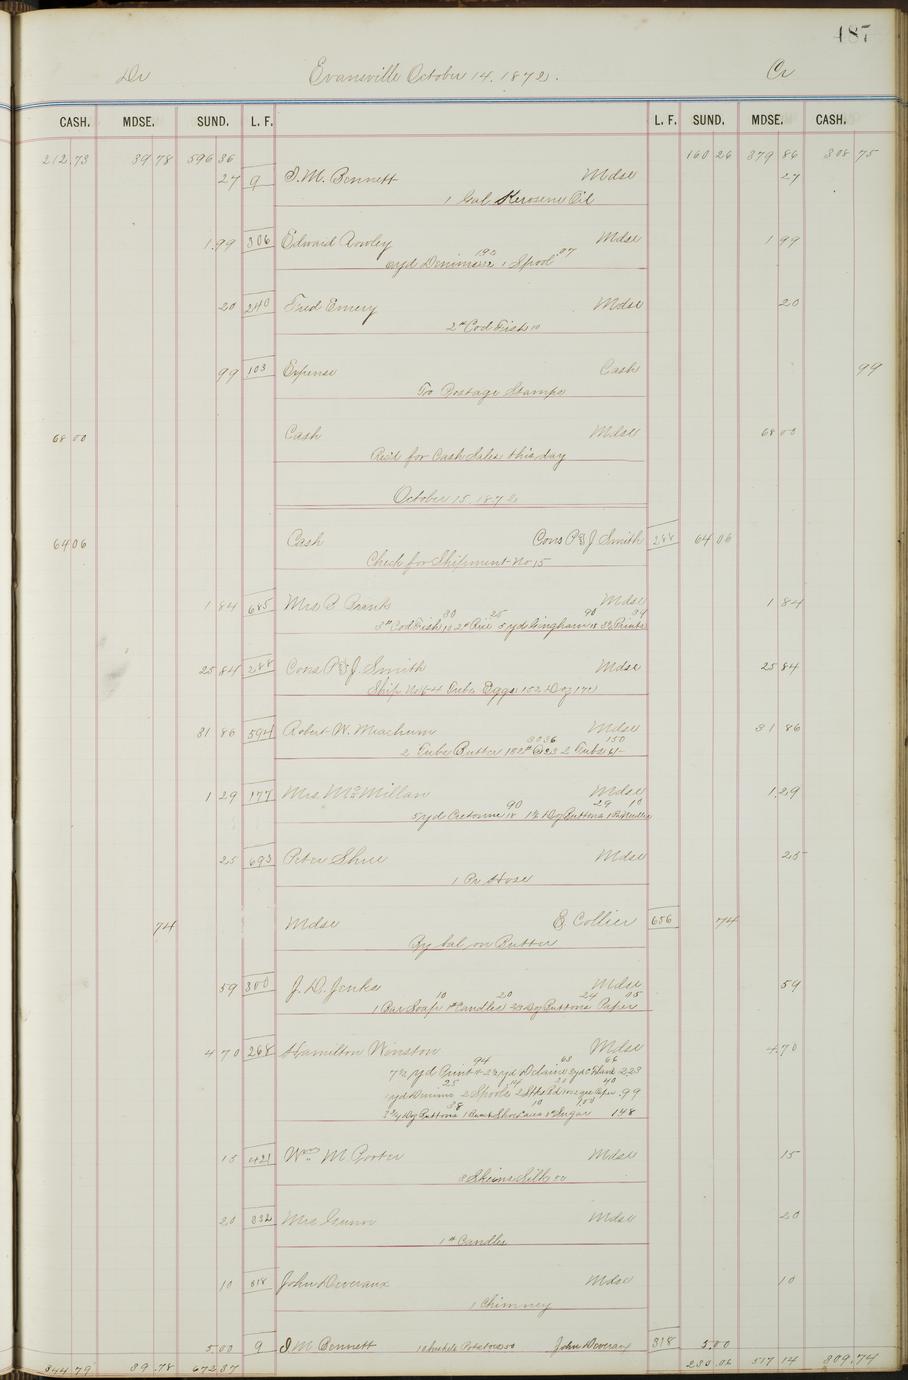 487
Dr Evansville October 14, 1872. Cr
CASH. MDSE. SUND. L. F. L. F. SUND. MDSE. CASH.
212.73 39.78 596 36 160 26 379 86 308 75
27 9 I. M. Bennett Mdse 27
1 Gal Kerosene Oil
1.99 306 Edward Rowley Mdse 1 99
yd Denims 1 Spool 07
20 240 Fred Emery Mdse 20
2# Cod Fish 10
99 103 Expense Cash 99
Too Postage Stamps
68 00 Cash Mdse 68 00
Recd for Cash Sales this day
October 15, 1872
64 06 Cash Cons P & J Smith 288 64 06
Check for Shipment No 15
1 84 685 Mrs Mdse 1 84
30 25 90 39
3# Cod Fish 10 2# Rice 5 yd Gingham 18 3½ Prints
25 84 288 Cons P & J. Smith Mdse 25 84
Ship No 16-4 Tubs Eggs 152 Doz 17¢
31 86 594 Robert W. Meachum Mdse 31 86
30 36 150
2 Tubs Butter 132# @ 23 2 Tubs 6/-
1 29 177 Mrs. McMillan Mdse 1.29
90 29 10
5 yd Cretonne 18 Doz Buttons 1 Pa Needles
25 693 Peter Shue Mdse 25
1 Pr Hose
74 Mdse E Collier 656 74
By bal on Butter
59 300 J. D. Jenks Mdse 59
10 20 24 05
1 Bar Soap 1# Candles Doz Buttons Paper
4 70 268 Hamilton Winston Mdse 4 70
94 63 66
yd Print yd Delaine 3 yd 2 23
25 14 20 40
yd Denims 2 Spools 2 .99
38 10 1.00
Doz Buttons 1 Shoe Sugar 1 48
15 421 Wm M Porter Mdse 15
3 Skeins Silk
20 332 Mrs Gunn Mdse 20
1# Candles
10 318 John Deveraux Mdse 10
1 Chimney
5.00 9 I M Bennett 10 bushels Potatoes 50 John Deveraux 318 5.00
344.79 39.78 672 37 230.06 517 14 309.74